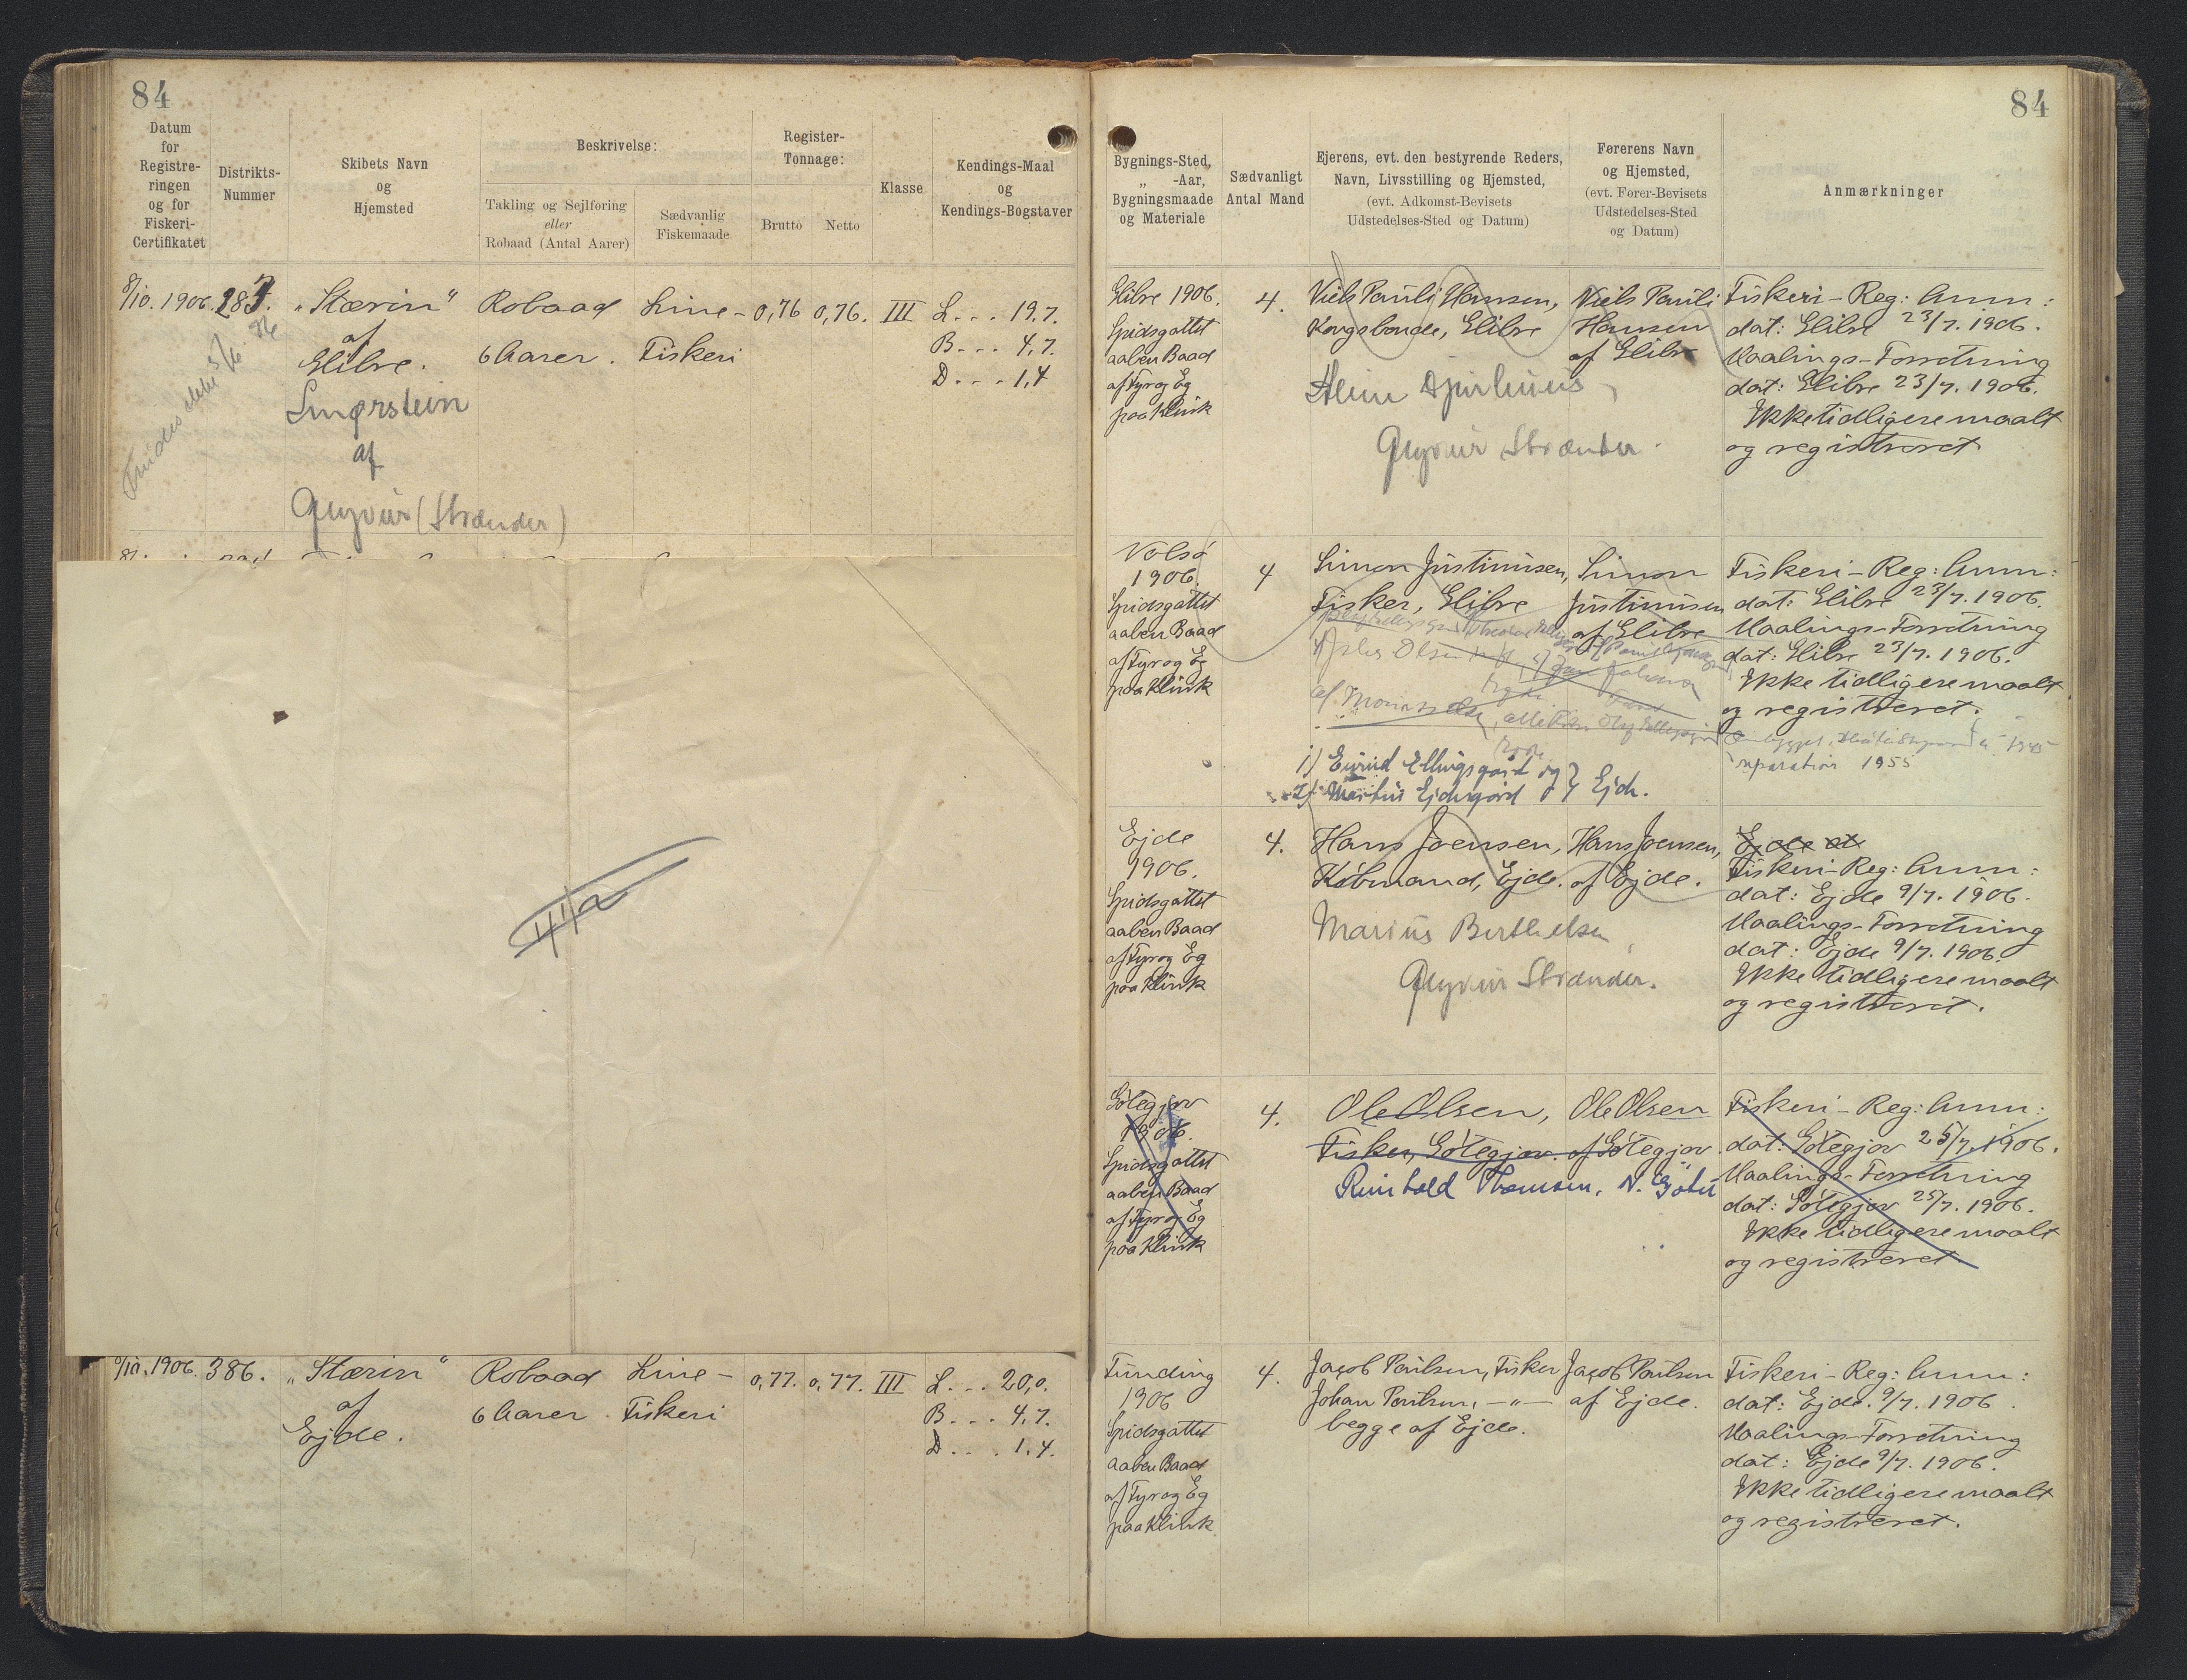 84
Datum
for
Registre-
ringen
og for
Fiskeri-
Certifikatet
Distrikts-
Nummer
Skibets Navn
og
Hjemsted
Beskrivelse:
Takling og Sejlføring
eller
Robaad (Antal Aarer)
Sædvanlig
Fiskemaade
Register-
Tonnage:
Brutto
Netto
Klasse
Kendings-Maal
og
Kendings-Bogstaver
8/10. 1906.
„Stærin“
af
Elibre.
Robaad
6 Aarer.
Line-
Fiskeri
0,76
0,76.
III
L... 19.7.
B... 4,7.
D... 1,4
af
Glyvur (Strænder)
41a
9/10. 1906.
386.
„Stærin“
af
Ejde.
Robaad
6 Aarer.
Line-
Fiskeri
0,77.
0,77.
III
L... 20,0.
B... 4,7.
D... 1,4.
84
Bygnings-Sted,
„ -Aar,
Bygningsmaade
og Materiale
Sædvanligt
Antal Mand
Ejerens, evt. den bestyrende Reders,
Navn, Livsstilling og Hjemsted,
(evt. Adkomst-Bevisets
Udstedelses-Sted og Datum)
Førerens Navn
og Hjemsted,
(evt. Fører-Bevisets
Udstedelses-Sted
og Datum)
Anmærkninger
Elibre 1906.
Spidsgattet
aaben Baad
af Fyr og Eg
paa Klink
4.
Niels Pauli Hansen,
Kongsbonde, Elibre
Glyvur Strænder.
Niels Pauli
Hansen
af Elibre
Fiskeri-Reg: Anm:
dat: Elibre 23/7. 1906.
Maalings-Forretning
dat: Elibre 23/7. 1906.
Ikke tidligere maalt
og registreret.
Nolsø
1906.
Spidsgattet
aaben Baad
af Fyr og Eg
paa Klink
4
Simon Justinusen,
Fisker, Elibre
1) Eivind Ellingsgård og
2) Martin Ejdesgård } Ejde.
Simon
Justinusen
af Elibre
Fiskeri-Reg: Anm:
dat: Elibre 23/7. 1906.
Maalings-Forretning
dat: Elibre 23/7. 1906.
Ikke tidligere maalt
og registreret.
reparation 1955
Ejde
1906.
Spidsgattet
aaben Baad
af Fyr og Eg
paa Klink
4.
Hans Joensen,
Købmand, Ejde.
Marius Berthelsen,
Glyvur Strænder.
Hans Joensen,
af Ejde.
Ejde at
Fiskeri-Reg: Anm:
dat: Ejde 9/7. 1906.
Maalings-Forretning
dat: Ejde 9/7. 1906.
Ikke tidligere maalt
og registreret.
Götegjov
1906.
Spidsgattet
aaben Baad
af Fyr og Eg
paa Klink
4.
Ole Olsen,
Fisker, Götegjov.
Reinhold Thomsen, N. Gøtu
Ole Olsen
af Götegjov.
Fiskeri-Reg: Anm:
dat: Götegjov 25/7. 1906.
Maalings-Forretning
dat: Götegjov 25/7. 1906.
Ikke tidligere maalt
og registreret.
Funding
1906
Spidsgattet
aaben Baad
af Fyr og Eg
paa Klink
4.
Jacob Poulsen, Fisker
Johan Poulsen, -"-
begge af Ejde.
Jacob Poulsen
af Ejde.
Fiskeri-Reg: Anm:
dat: Ejde. 9/7. 1906.
Maalings-Forretning
dat: Ejde 9/7. 1906.
Ikke tidligere maalt
og registreret.